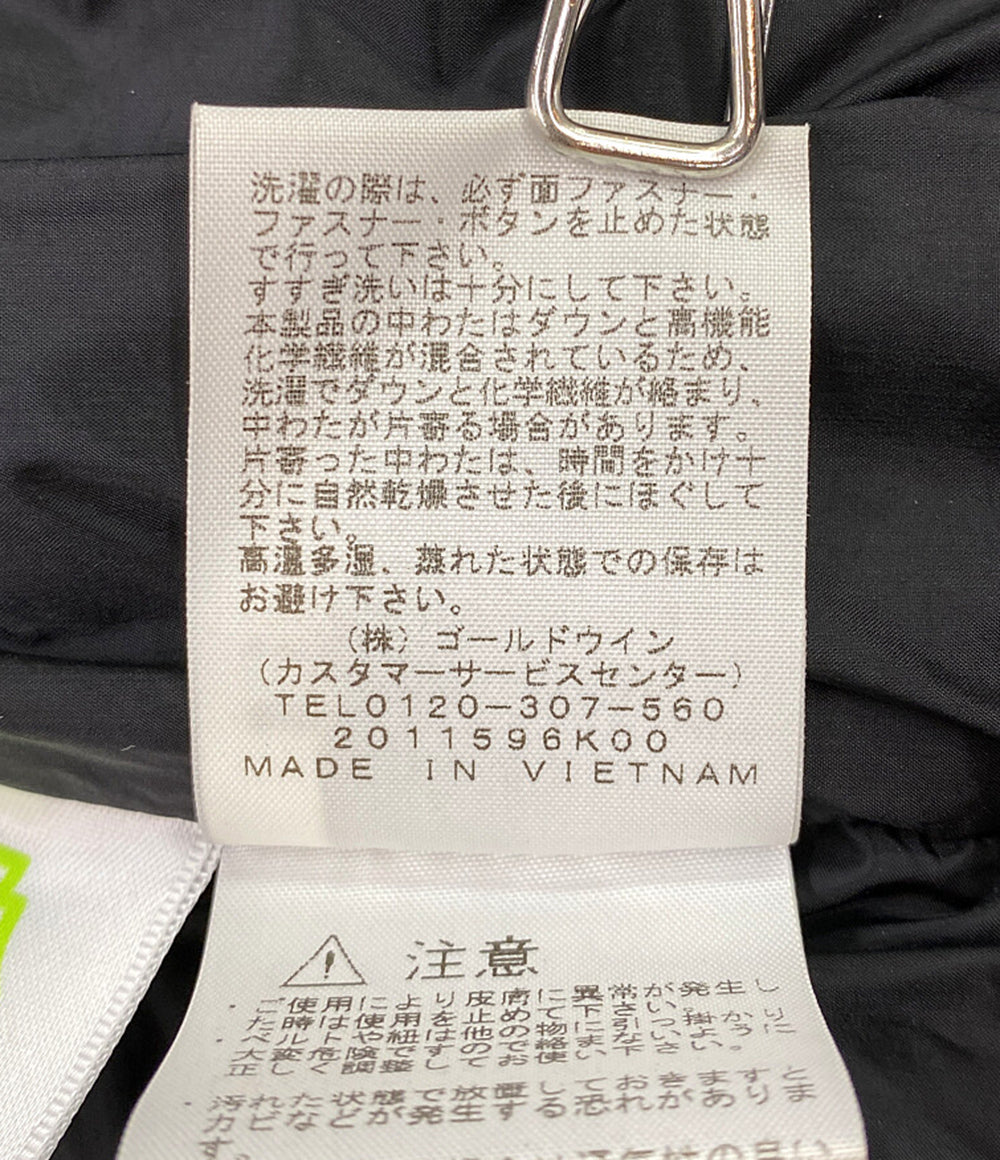 洗濯の際は、必ず面ファスナー・
ファスナー・ボタンを止めた状態
で行って下さい。
すすぎ洗いは十分にして下さい。
本製品の中わたはダウンと高機能
化学繊維が混合されているため、
洗濯でダウンと化学繊維が絡まり、
中わたが片寄る場合があります。
片寄った中わたは、時間をかけ十
分に自然乾燥させた後にほぐして
下さい。
高温多湿、蒸れた状態での保存は
お避け下さい。
(株)ゴールドウイン
(カスタマーサービスセンター)
TEL0120-307-560
2011596K00
MADE IN VIETNAM
注意
・ご使用により皮膚に異常が発生し
た時は使用を止めて下さい。
・ベルトや紐は他の物に引っ掛かり
大変危険ですので絡まないように
正しく調整してお使い下さい。
・汚れた状態で放置しておきますと
カビなどが発生する恐れがありま
す。
通気性の良い